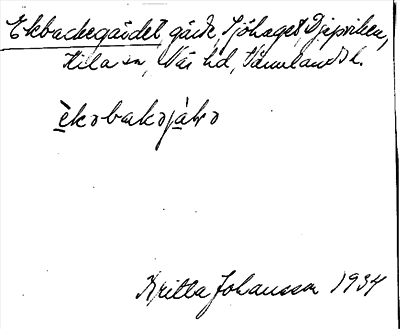 Ekbackegärdet, gärde, Sjöhaget, Djupviken,
Kila sn, Näs hd, Värmlands l.
èkɔbakɔjàḷɔ
Britta Johansson 1934